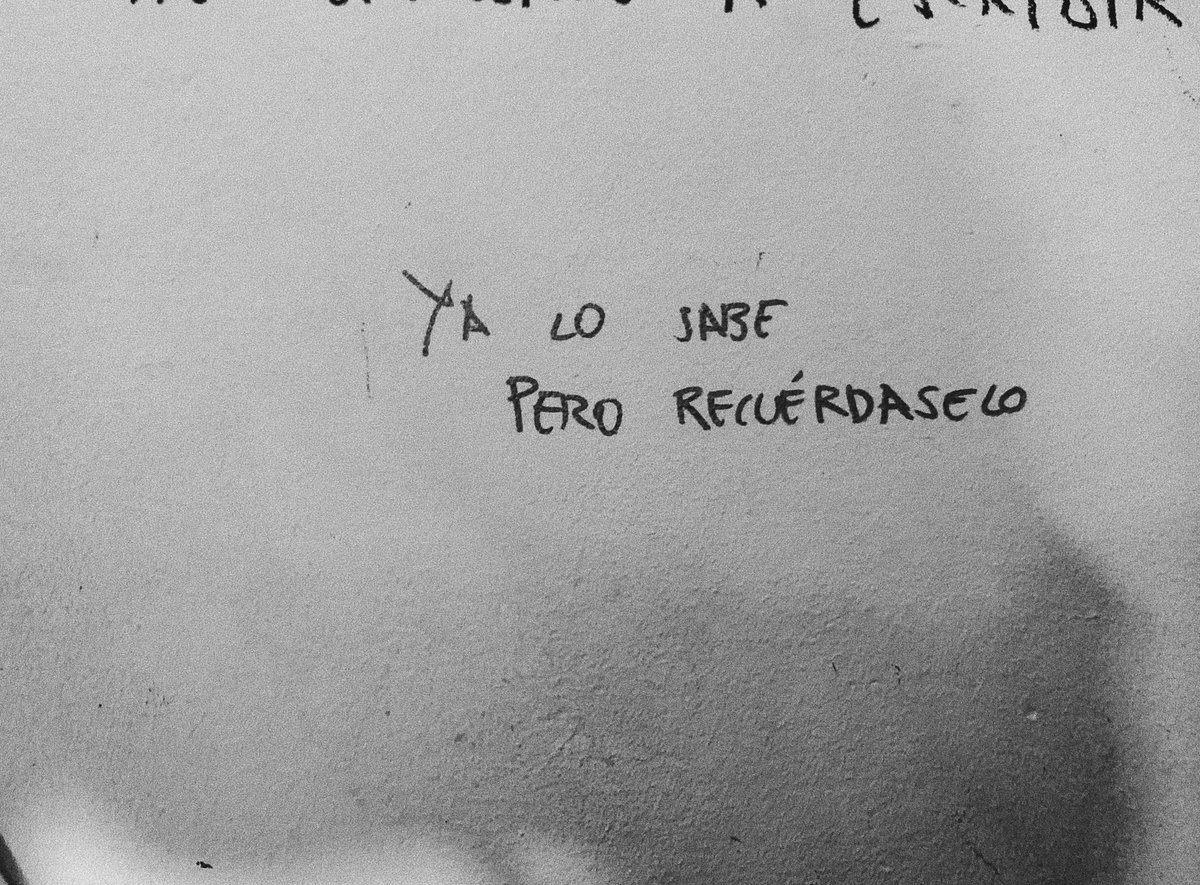 A ESCRIBIR
YA LO SABE
PERO RECUÉRDASELO